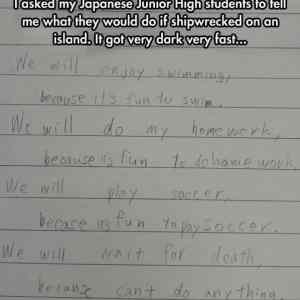 I asked my Japanese Junior High students to tell
me what they would do if shipwrecked on an
island. It got very dark very fast...
We will enjoy swimming,
because it's fun to swim.
We will do my homework,
because its fun to do homework,
We will play soccer,
because its fun to play soccer.
We will wait for death,
because can't do anything.